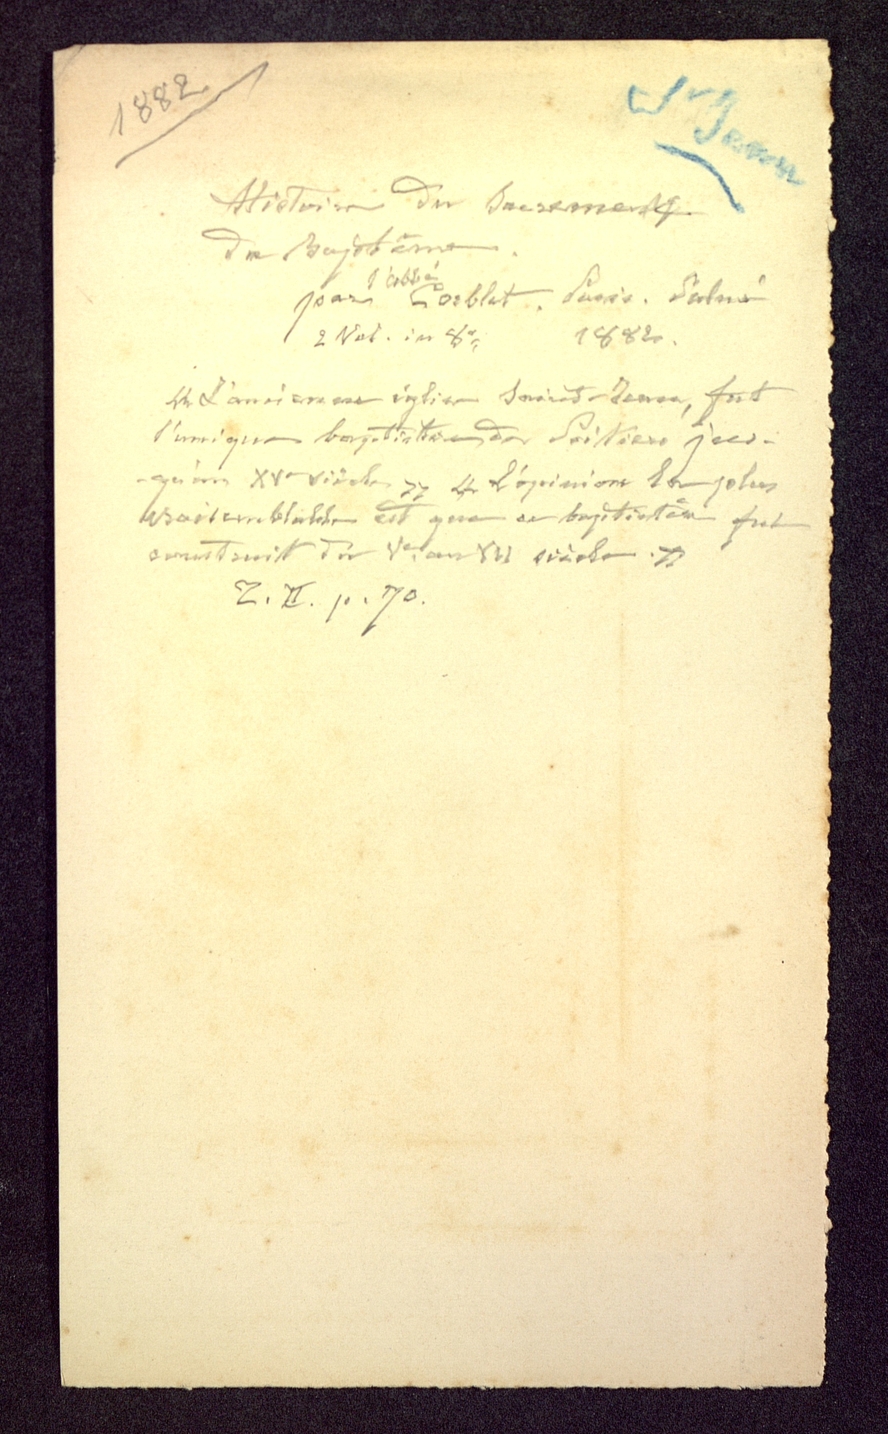 1882
St Jean
Histoire du Sacrement
de Baptême.
par l'abbé Corblet. Paris. Palmé
2 Vol. in 8º 1882.
« L'ancienne église Saint-Jean, fut
l'unique baptistère de Poitiers jus-
-qu'au XVe siècle » « L'opinion la plus
vraisemblable est que ce baptistère fut
construit du Ve au VII siècle. »
T. II. p. 70.